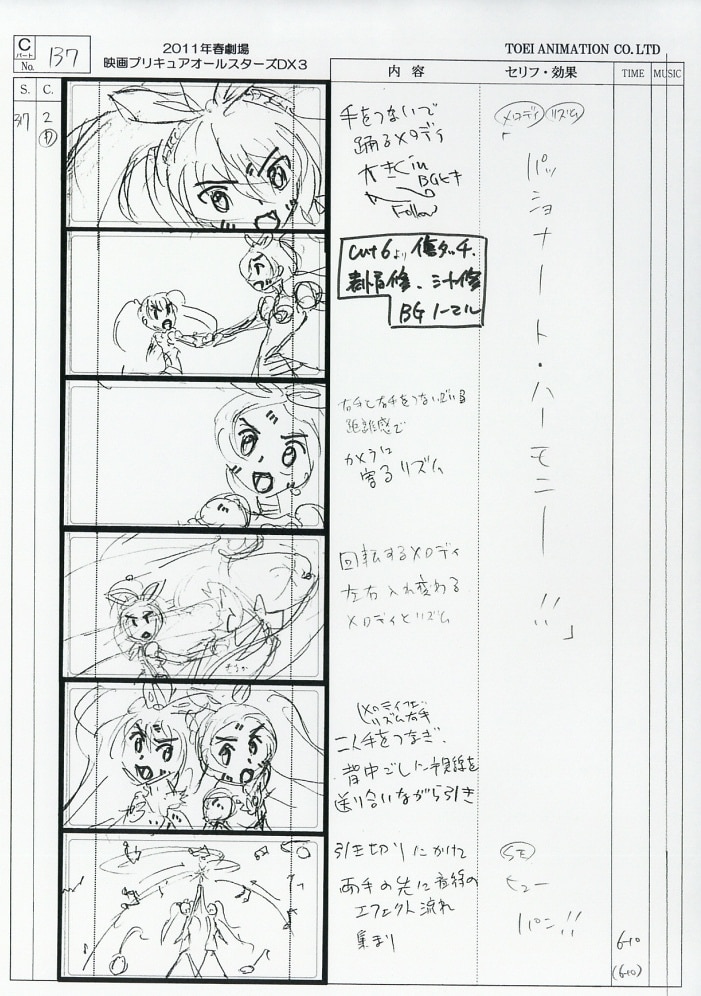 C
パート
No. 137
2011年春劇場
映画プリキュアオールスターズDX3
TOEI ANIMATION CO. LTD
S.
C.
内 容
セリフ・効果
TIME
MUSIC
37
2
手をつないで
踊るメロディ
大きくin
BGヒキ
Follow
メロディ リズム
「パッショナート・ハーモニー!!」
Cut6より
BGノーマル
右手と右手をつないでいる
距離感で
カメラに
寄るリズム
回転するメロディ
左右入れ変わる
メロディとリズム
リズム右手
二人手をつなぎ、
背中ごしに視線を
送り合いながら引き
引き切りにかけて
両手の先に音符の
エフェクト流れ
集まり
SE
ヒュー
パン!!
6+0
(6+0)